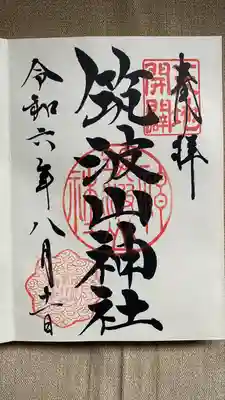 奉拝
筑波山神社
令和六年八月十一日